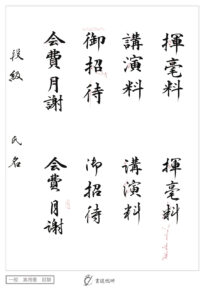 揮毫料 揮毫料
講演料 講演料
御招待 御招待
会費月謝 会費月謝
段級 氏名
一般 実用書 前期